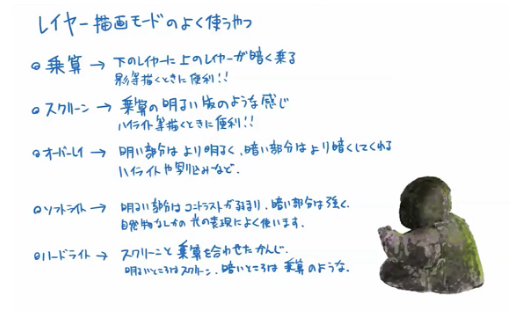 レイヤー描画モードのよく使うやつ
乗算 → 下のレイヤーに上のレイヤーが暗く乗る
影等描くときに便利!!
スクリーン → 乗算の明るい版のような感じ
ハイライト等描くときに便利!!
オーバーレイ → 明い部分はより明るく、暗い部分はより暗くしてくれる
ハイライトや写り込みなど.
ソフトライト → 明るい部分はコントラストが弱まり、暗い部分は強く.
自発物なしかの光の表現によく使います.
ハードライト → スクリーンと乗算を合わせたかんじ.
明るいところはスクリーン、暗いところは乗算のような.